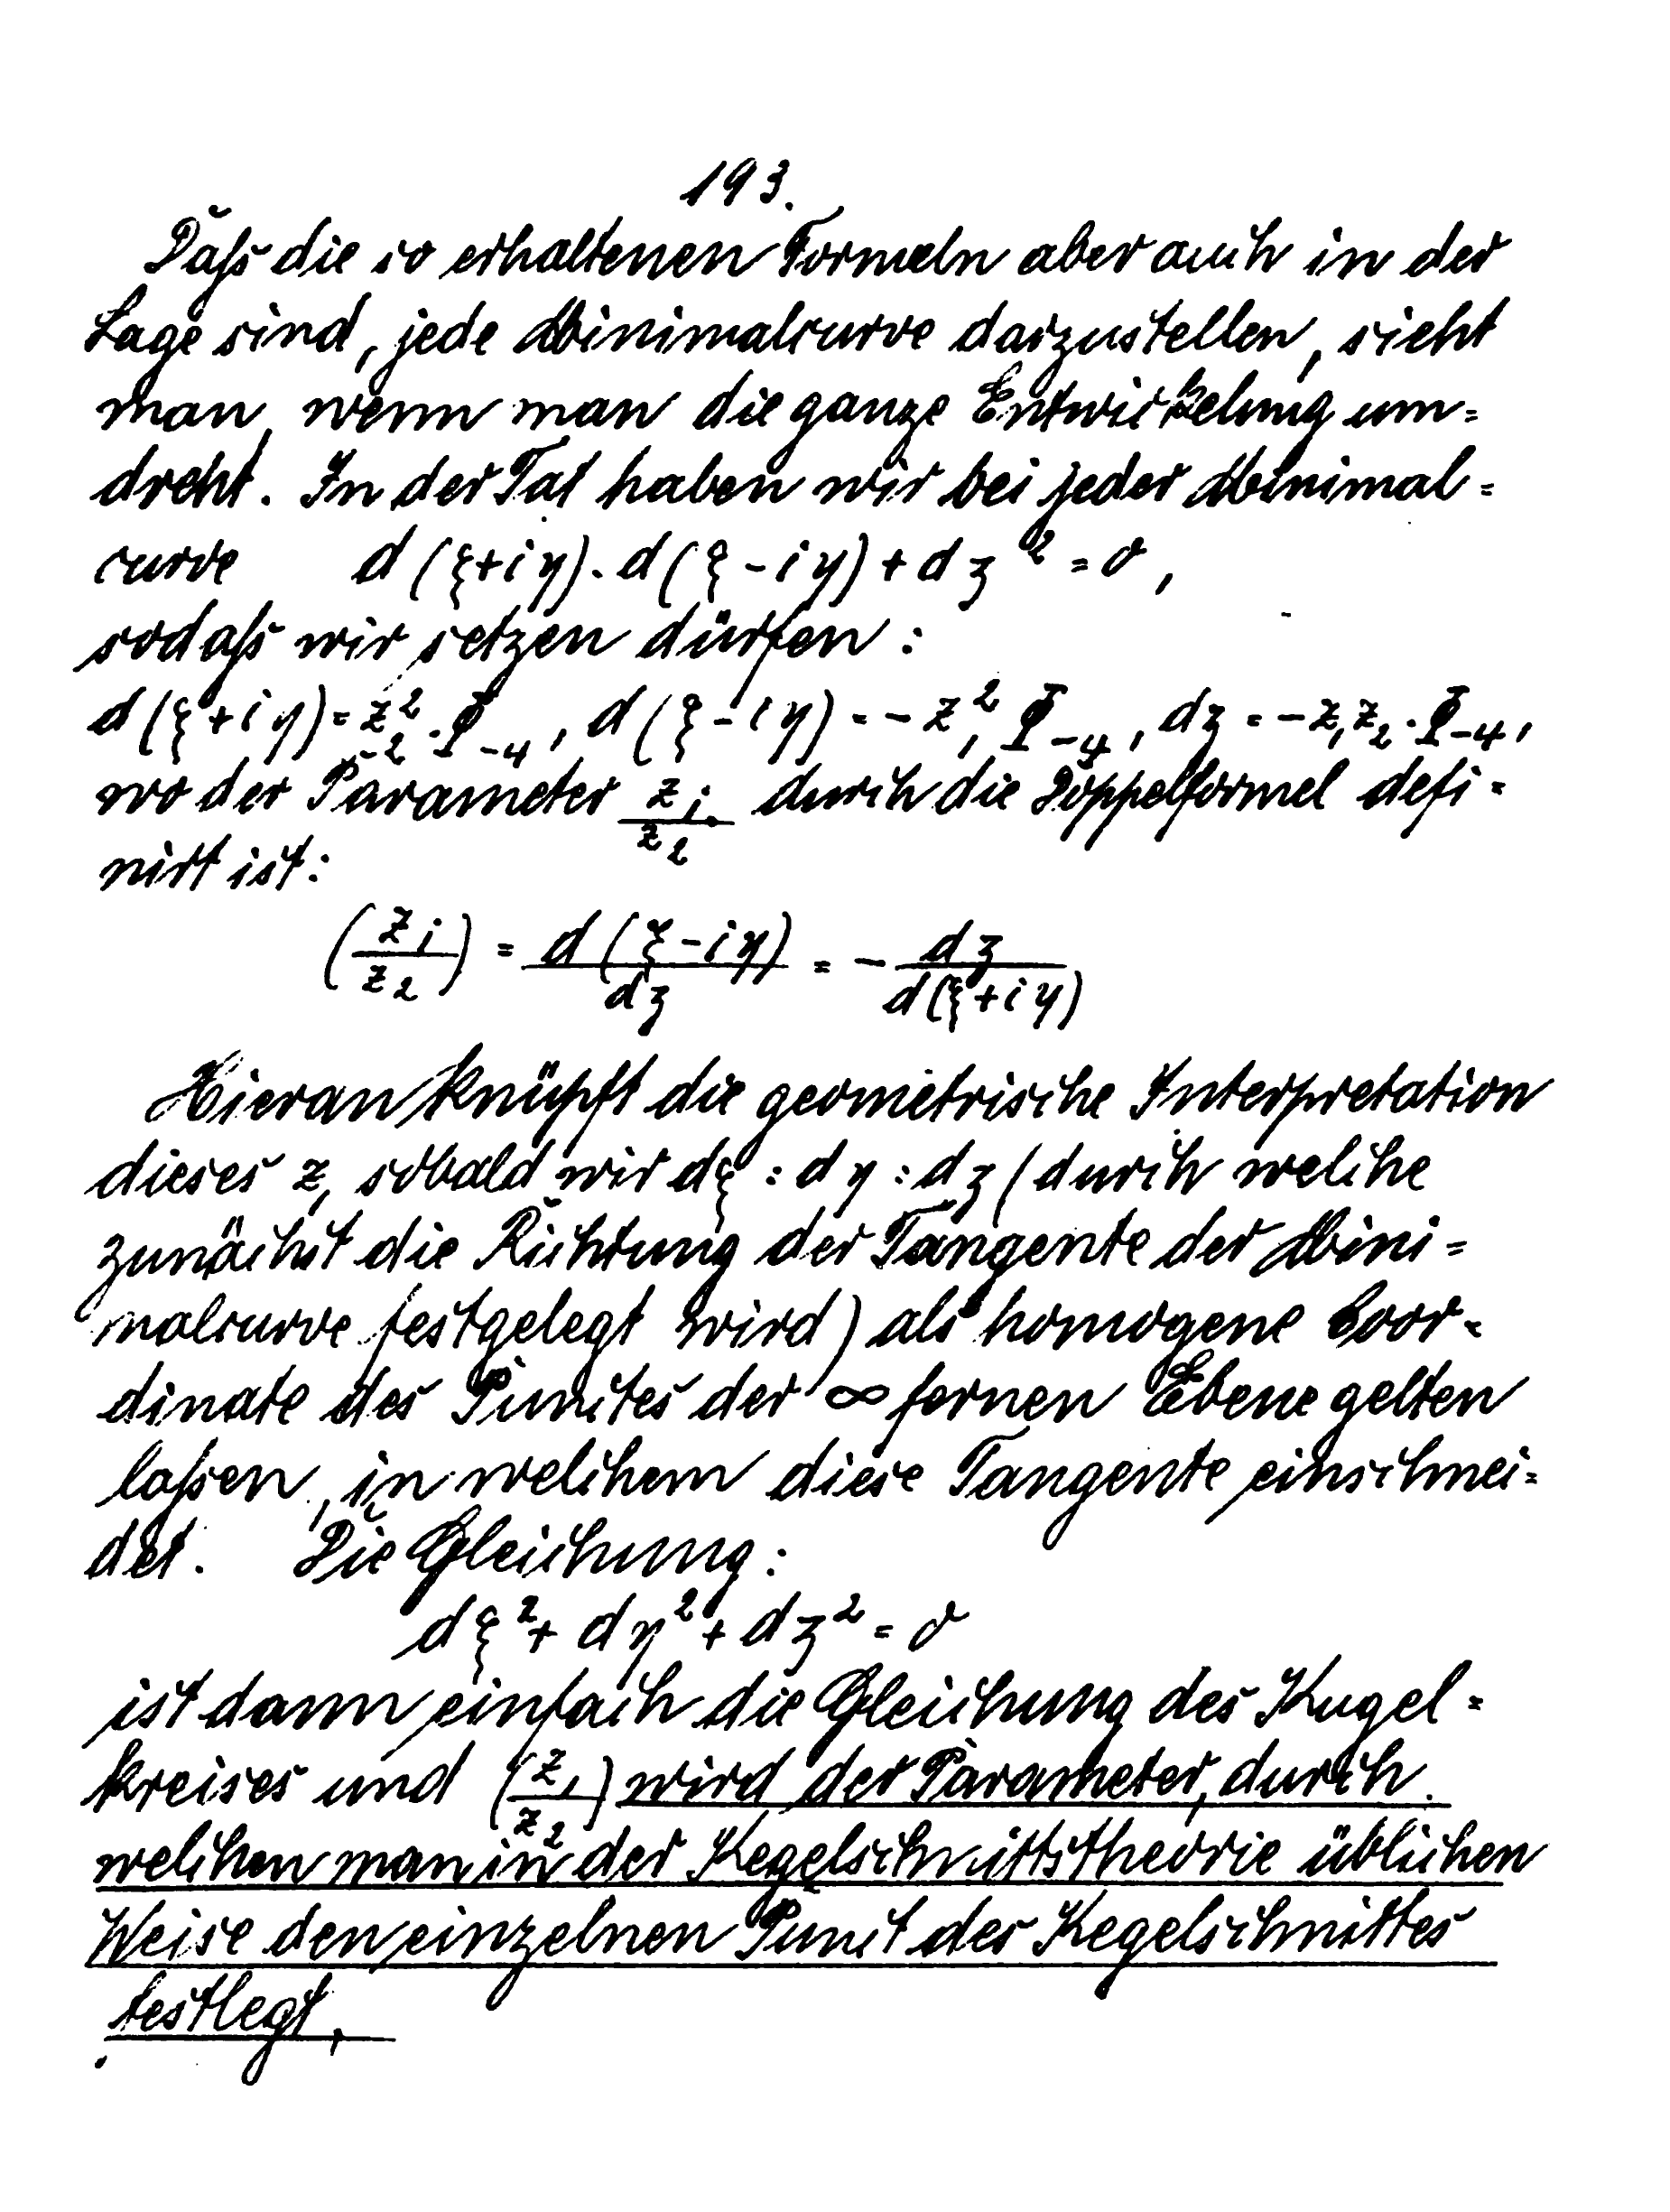 193.
Daß die so erhaltenen Formeln aber auch in der
Lage sind, jede Minimalcurve darzustellen, sieht
man, wenn man die ganze Entwickelung um=
dreht. In der Tat haben wir bei jeder Minimal=
curve d(ξ+iη)·d(ξ-iη)+dʒ²=0,
sodaß wir setzen dürfen:
d(ξ+iη)=z₂²·Φ₋₄, d(ξ-iη)=-z₁²Φ₋₄, dʒ=-z₁z₂·Φ₋₄,
wo der Parameter z₁/z₂ durch die Doppelformel defi=
nirt ist:
(z₁/z₂) = d(ξ-iη)/dʒ = - dʒ/d(ξ+iη)
Hieran knüpft die geometrische Interpretation
dieses z, sobald wir dξ:dη:dʒ (durch welche
zunächst die Richtung der Tangente der Mini=
malcurve festgelegt wird) als homogene Coor=
dinate des Punctes der ∞ fernen Ebene gelten
laßen, in welchem diese Tangente einschnei=
det. Die Gleichung:
dξ²+dη²+dʒ²=0
ist dann einfach die Gleichung des Kugel=
kreises und (z₁/z₂) wird der Parameter, durch
welchen man in der Kegelschnittstheorie üblichen
Weise den einzelnen Punct des Kegelschnittes
festlegt.